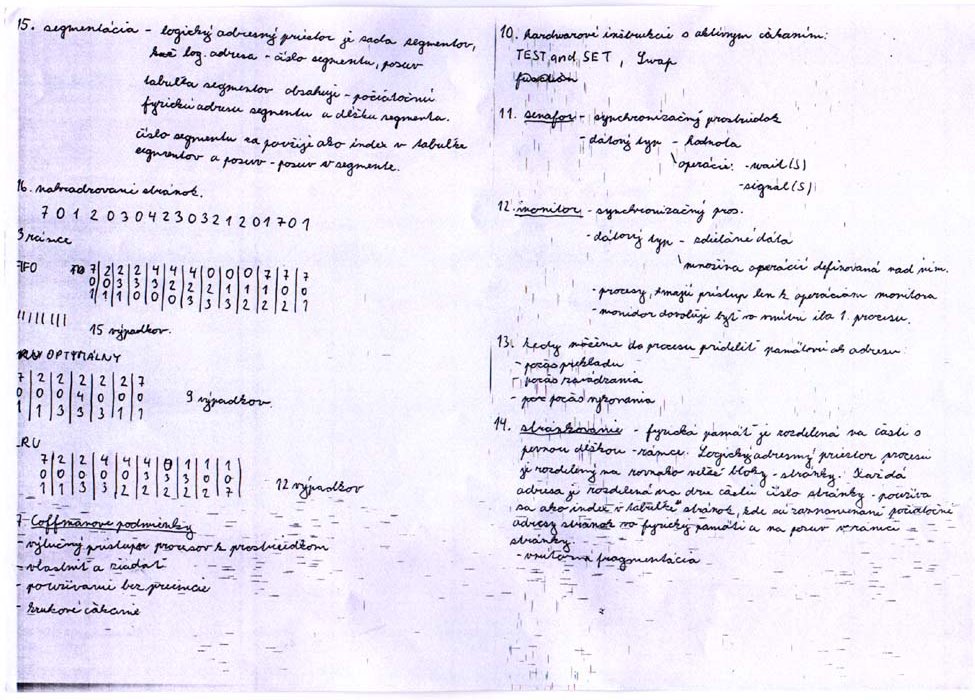 15. segmentácia - logický adresný priestor je sada segmentov,
log. adresa - číslo segmentu, posuv
tabuľka segmentov obsahuje - počiatočnú
fyzickú adresu segmentu a dĺžku segmentu.
číslo segmentu sa použije ako index v tabuľke
segmentov a posuv - posuv v segmente.
16. nahradzovanie stránok.
7 0 1 2 0 3 0 4 2 3 0 3 2 1 2 0 1 7 0 1
3 rámce
FIFO 7 2 2 2 4 4 4 0 0 0 7 7 7
0 0 3 3 3 2 2 2 1 1 1 0 0
1 1 1 0 0 0 3 3 3 2 2 2 1
15 výpadkov.
OPTIMÁLNY
7 2 2 2 2 2 7
0 0 0 4 0 0 0
1 1 3 3 3 1 1
9 výpadkov.
LRU
7 2 2 4 4 4 0 1 1 1
0 0 0 0 0 3 3 3 0 0
1 1 3 3 2 2 2 2 2 7
12 výpadkov
7 - Coffmanove podmienky
- výlučný prístup procesov k prostriedkom
- vlastniť a žiadať
- používanie bez
- kruhové čakanie
10. hardwarové inštrukcie s aktívnym čakaním:
TEST and SET, Swap
11. semafor - synchronizačný prostriedok
- dátový typ - hodnota
operácie: - wait(S)
- signal(S)
12. monitor - synchronizačný pros.
- dátový typ - zdieľané dáta
množina operácií definovaná nad nim.
- procesy, majú prístup len k operáciám monitora
- monitor dovoľuje byť vo vnútri iba 1. procesu.
13. kedy môžeme do procesu prideliť pamäťovú adresu
- počas prekladu
- počas zavádzania
- počas vykonania
14. stránkovanie - fyzická pamäť je rozdelená na časti s
pevnou dĺžkou - rámce. Logický adresný priestor procesu
je rozdelený na rovnako veľké bloky - stránky. Každá
adresa je rozdelená na dve časti: číslo stránky - používa
sa ako index v tabuľke stránok, kde sú zaznamenané počiatočné
adresy stránok vo fyzickej pamäti a na posuv v rámci
stránky.
- vnútorná fragmentácia